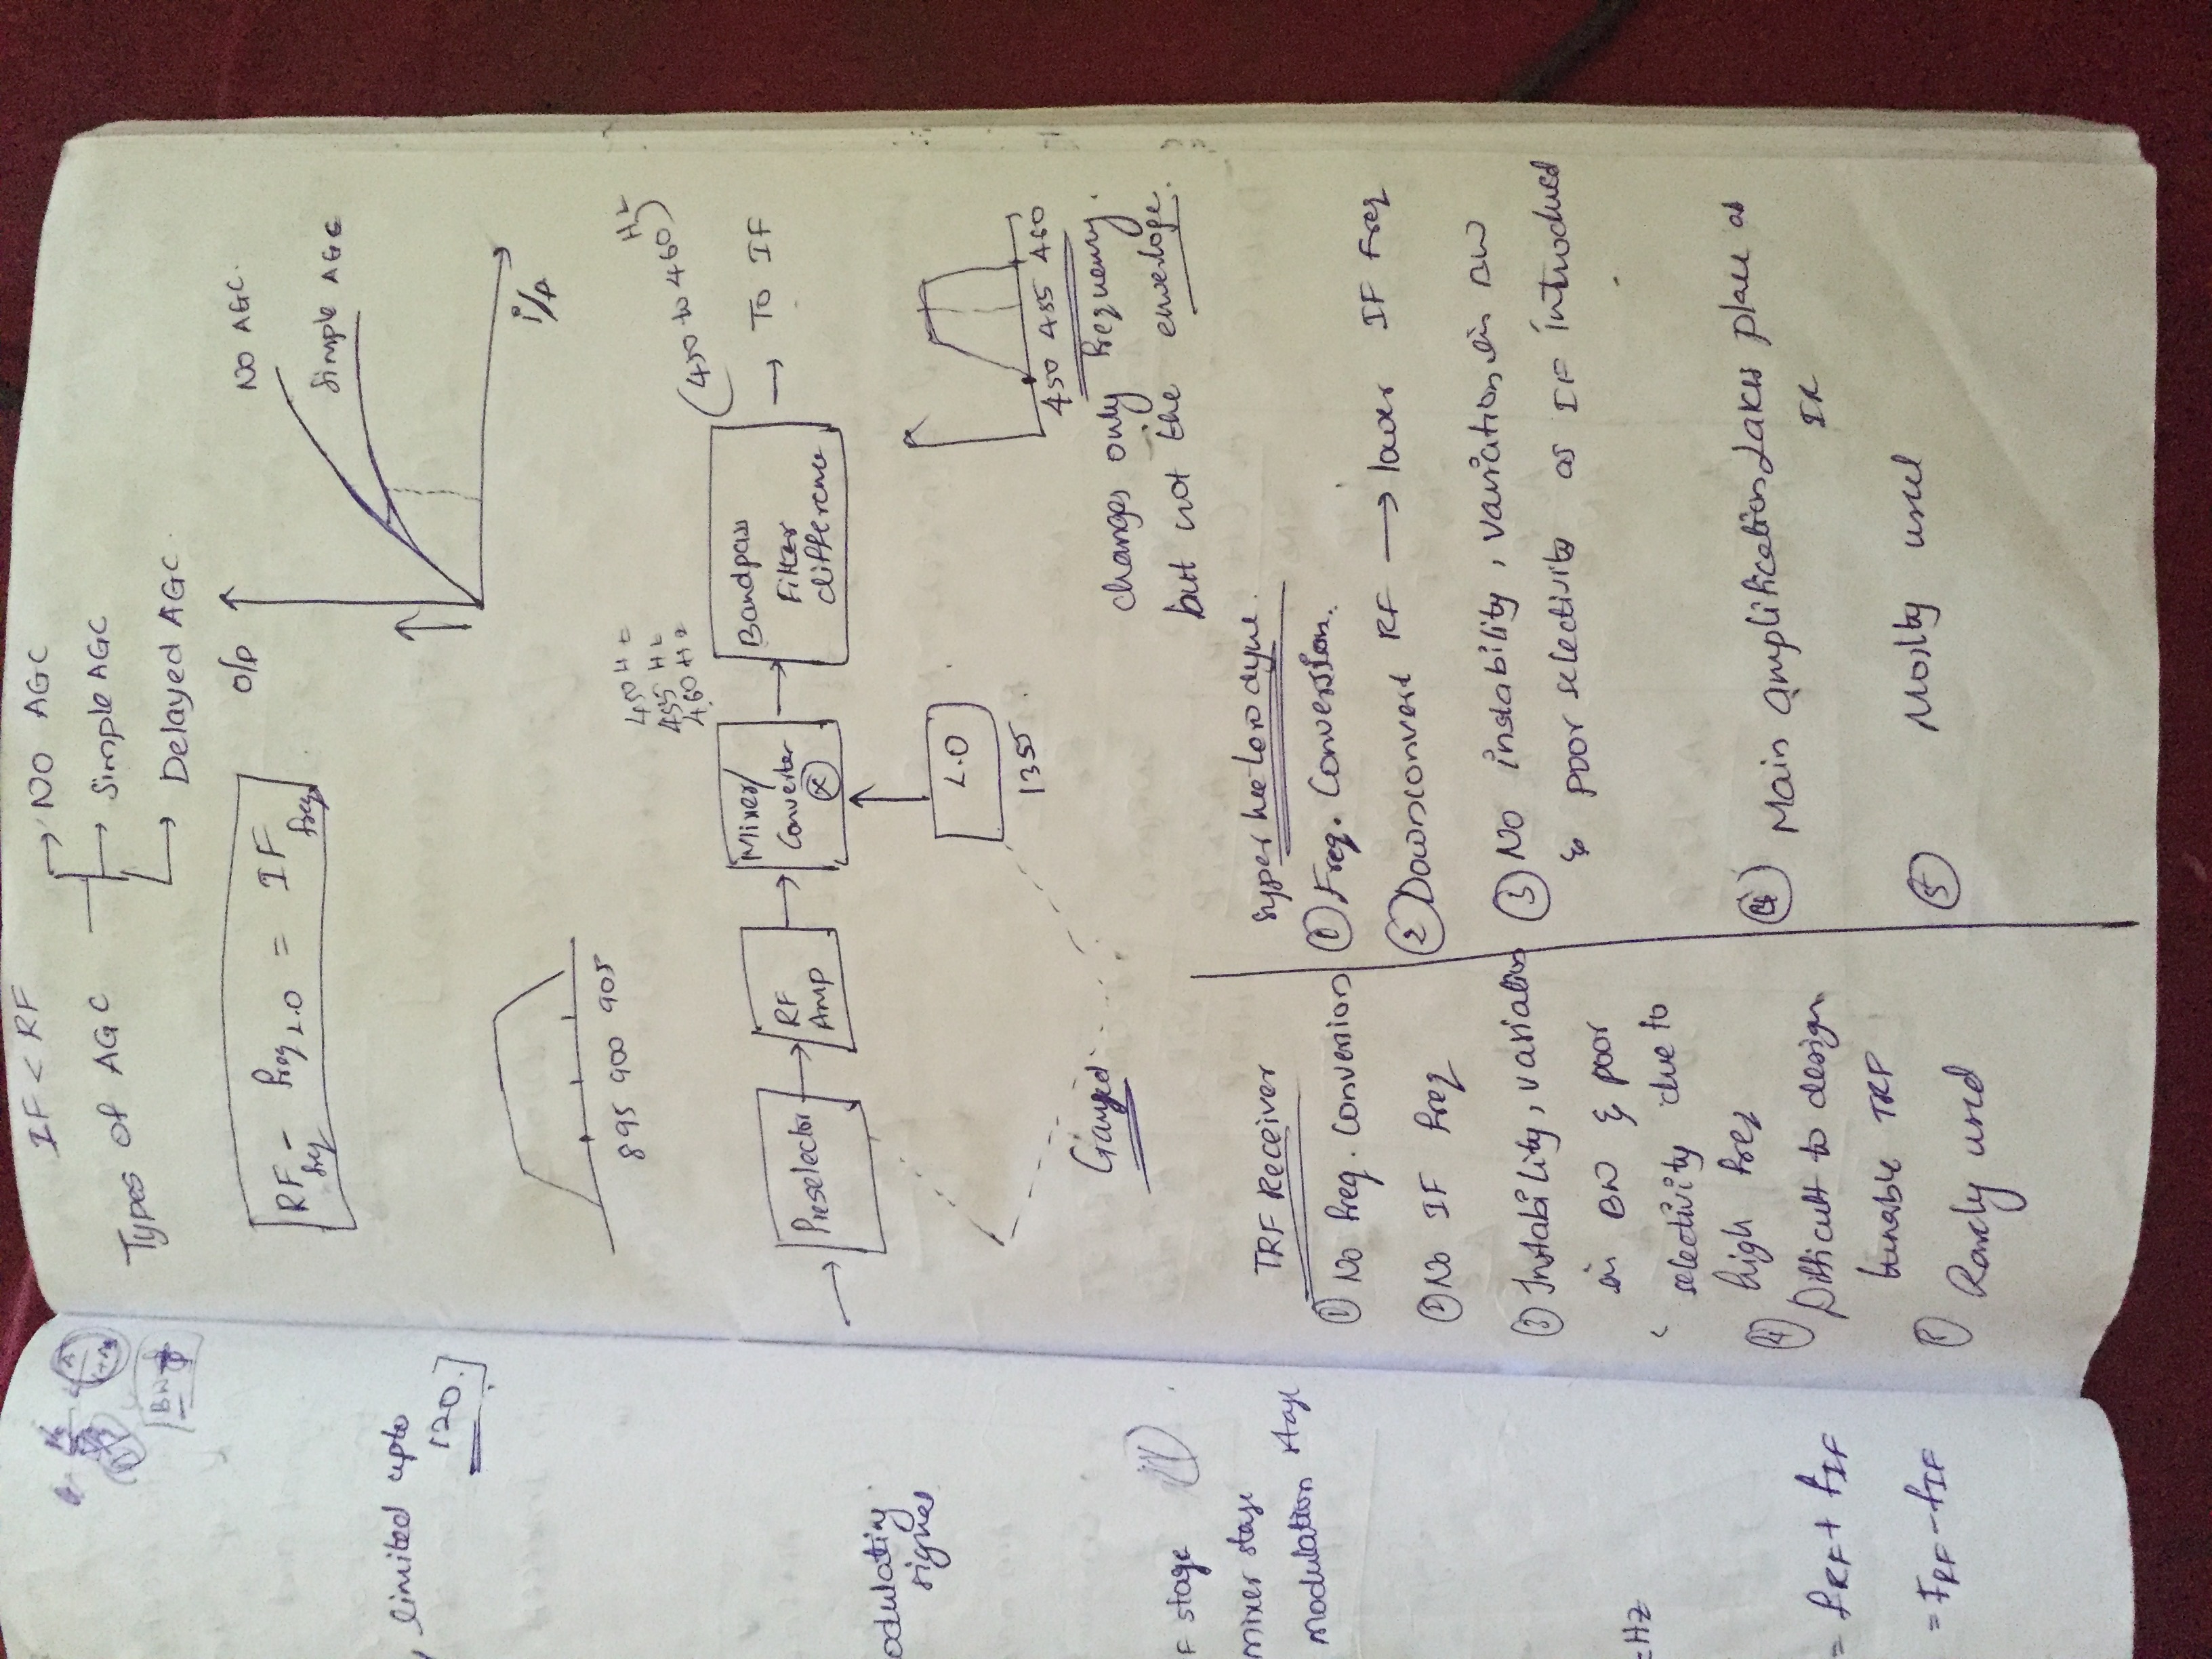 limited upto
120.]
odulating
signal
F stage
mixer stage
modulation stage
Hz
= fRF + fIF
= fRF - fIF
IF < RF
Types of AGC
→ NO AGC
→ Simple AGC
→ Delayed AGC
RF freq - freq L.O = IF freq
O/P
NO AGC.
Simple AGC
i/p
895 900 905
450 Hz
455 Hz
460 Hz
(450 to 460) Hz
Preselector
RF
AMP
Mixer/
Converter
Bandpass
Filter
difference
→ To IF
L.O
1355
Ganged
450 455 460
changes only frequency.
but not the envelope.
TRF Receiver
① No freq. Conversion
② No IF freq
③ Instability, variation
in BW & poor
selectivity due to
high freq
④
Difficult to design
tunable TRF
⑤
Rarely used
superheterodyne.
① Freq. Conversion.
② Downconvert RF → lower IF Freq
③ No instability, variation in BW
& poor selectivity as IF introduced
④ Main amplification takes place at
IF
⑤ Mostly used